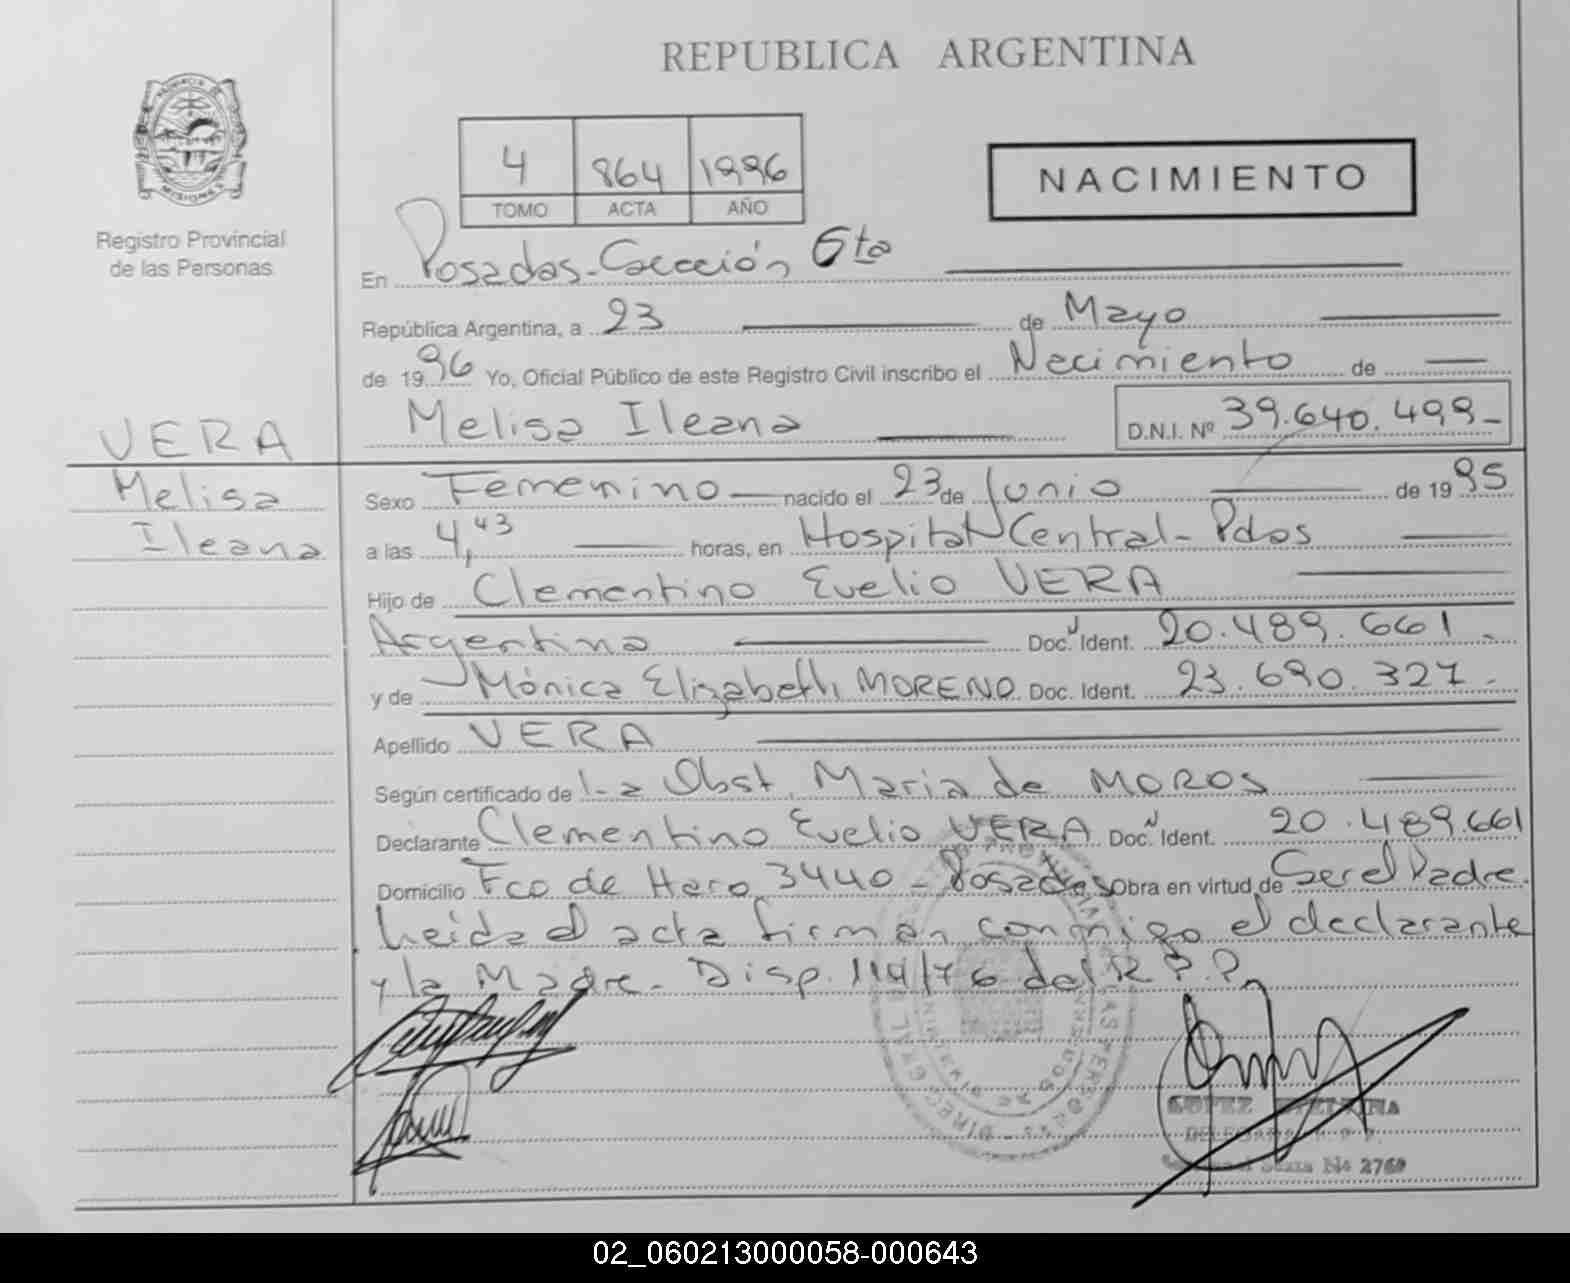 REPUBLICA ARGENTINA
MISIONES
Registro Provincial
de las Personas
4 864 1996
TOMO ACTA AÑO
NACIMIENTO
En Posadas-Sección 6ta
República Argentina, a 23 de Mayo
de 1996 Yo, Oficial Público de este Registro Civil inscribo el Nacimiento de
Melisa Ileana D.N.I. Nº 39.640.499-
VERA
Melisa
Ileana
Sexo Femenino nacido el 23 de Junio de 1995
a las 4,43 horas, en Hospital Central-Pdas
Hijo de Clementino Evelio VERA
Argentino Doc. Ident. 20.489.661.
y de Mónica Elizabeth MORENO Doc. Ident. 23.690.327.
Apellido VERA
Según certificado de la Obst. Maria de MOROS
Declarante Clementino Evelio VERA Doc. Ident. 20.489.661
Domicilio Fco de Haro 3440 - Posadas Obra en virtud de Ser el Padre.
Leida el acta firman conmigo el declarante
y la Madre. Disp. 114/76 del R.P.P.
LOPEZ
DELEGADA
Nº 2769
02_060213000058-000643